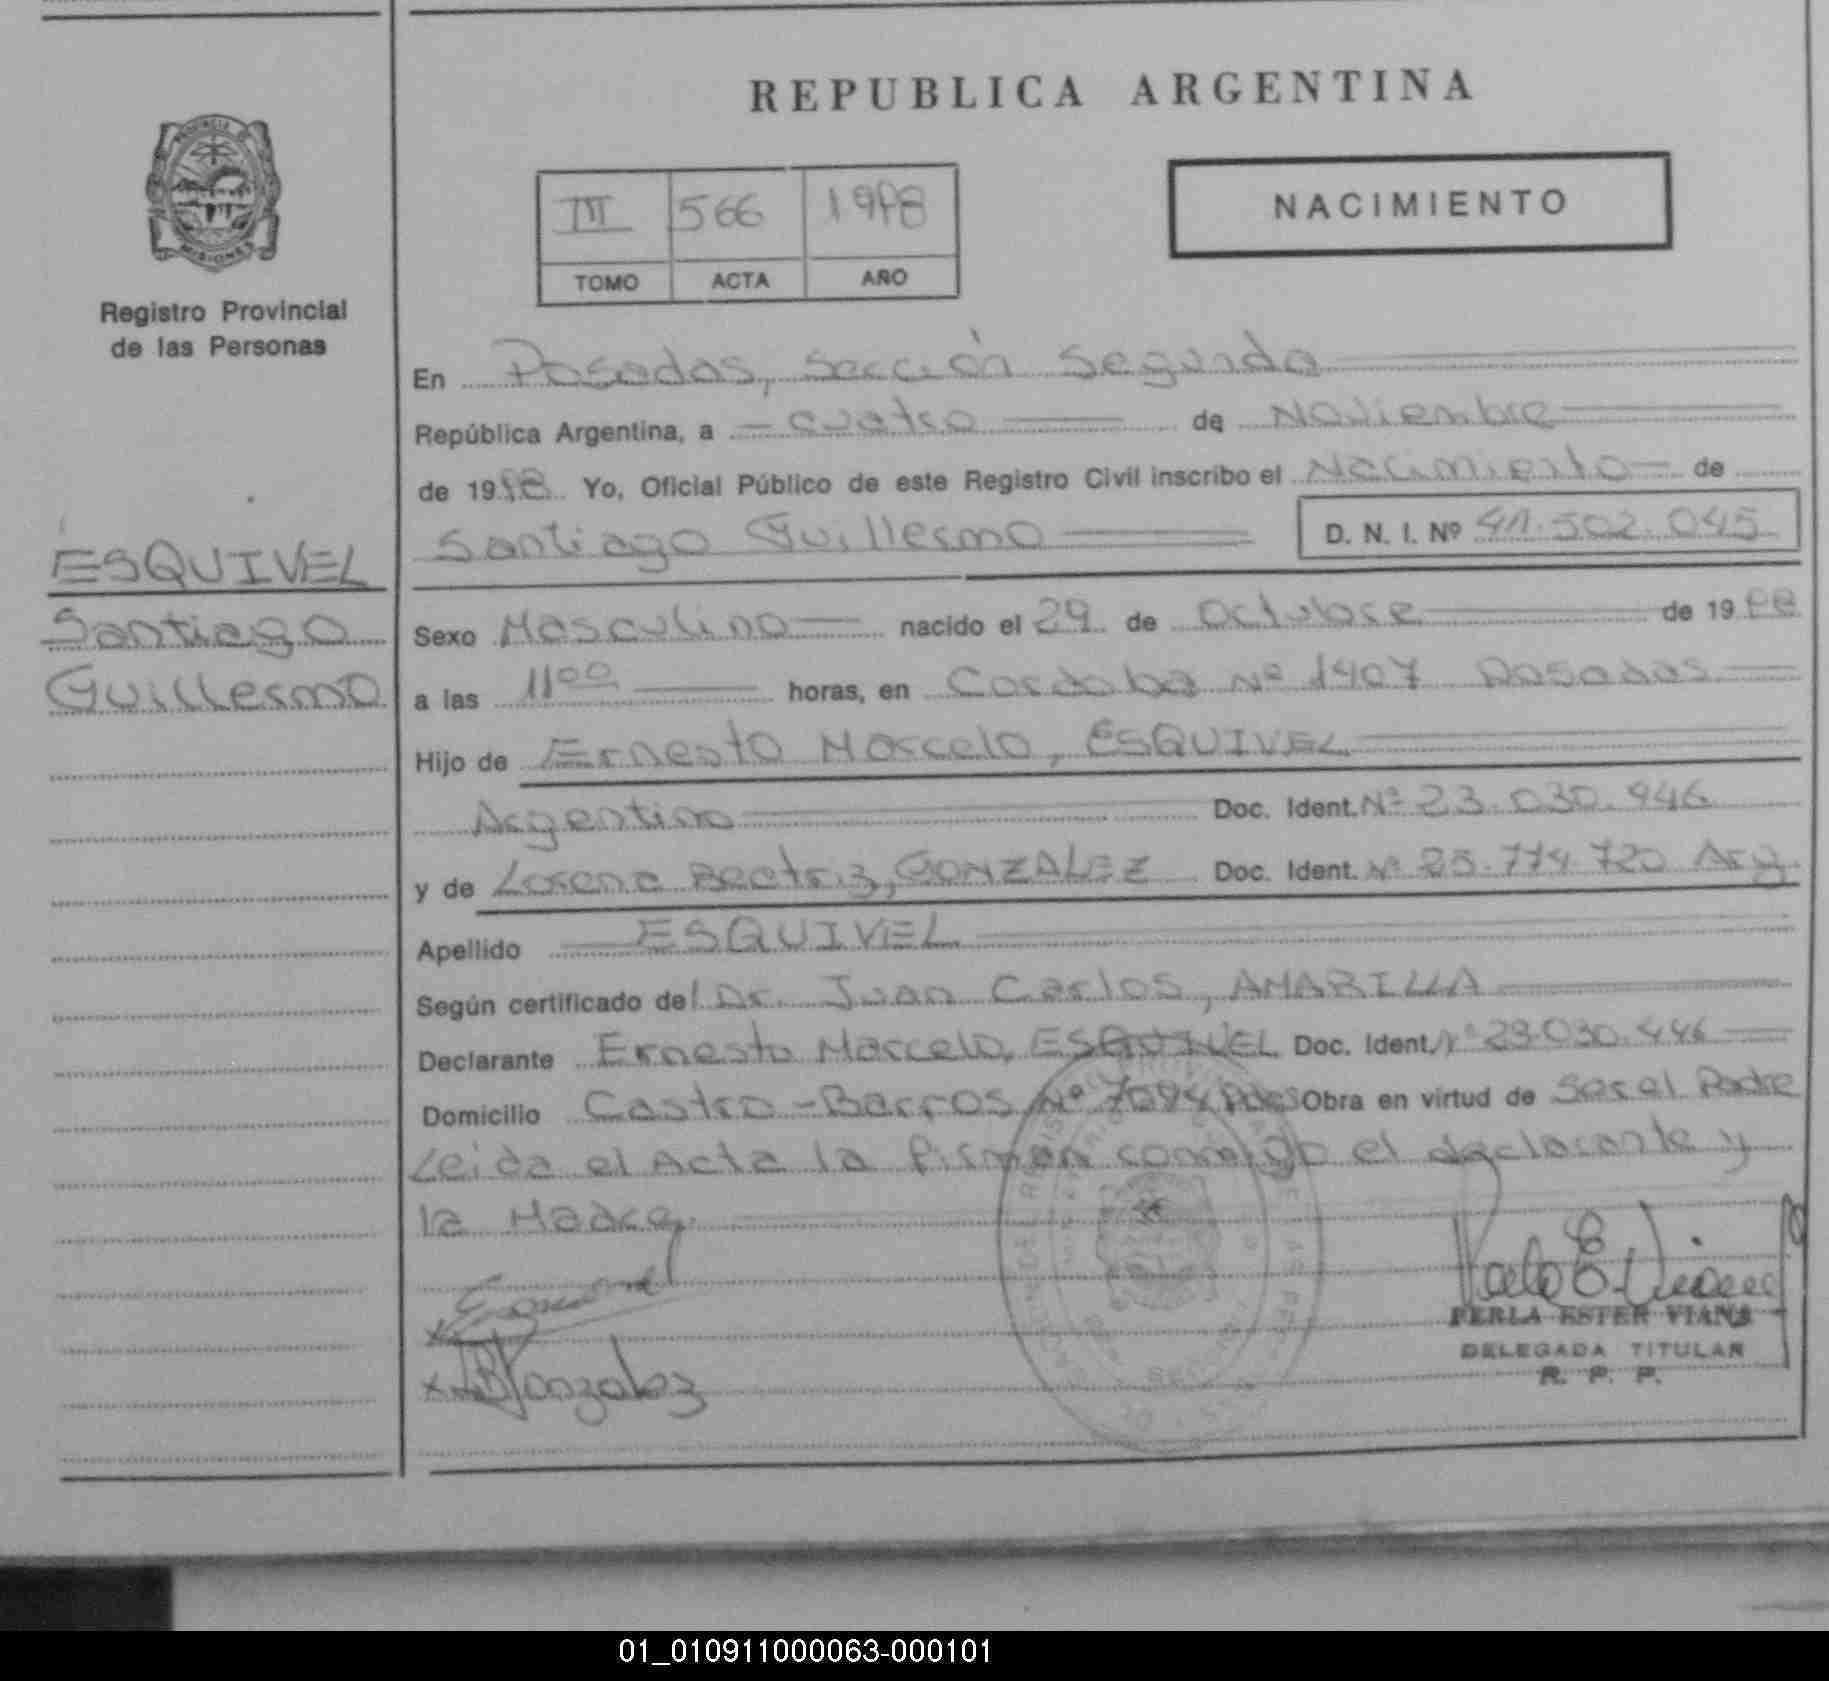 REPUBLICA ARGENTINA
PROVINCIA DE
MISIONES
Registro Provincial
de las Personas
III 566 1998
TOMO ACTA AÑO
NACIMIENTO
En Posadas, Sección Segunda
República Argentina, a cuatro de Noviembre
de 1998 Yo, Oficial Público de este Registro Civil inscribo el Nacimiento de
Santiago Guillermo D. N. I. Nº 41.502.045
ESQUIVEL
Santiago
Guillermo
Sexo Masculino nacido el 29 de Octubre de 1998
a las 11⁰⁰ horas, en Cordoba Nº 1407 Posadas
Hijo de Ernesto Marcelo, ESQUIVEL
Argentino Doc. Ident. Nº 23.030.446
y de Lorena Beatriz, GONZALEZ Doc. Ident. Nº 25.774.720 Arg
Apellido ESQUIVEL
Según certificado del Dr. Juan Carlos, AMARILLA
Declarante Ernesto Marcelo, ESQUIVEL Doc. Ident. Nº 23.030.446
Domicilio Castro-Barros Nº 7094 Pdas Obra en virtud de Ser el Padre
Leida el Acta la firman conmigo el declarante y
la Madre.
Esquivel
x LBGonzalez
Perla E. Viana
PERLA ESTER VIANA
DELEGADA TITULAR
R. P. P.
01_010911000063-000101